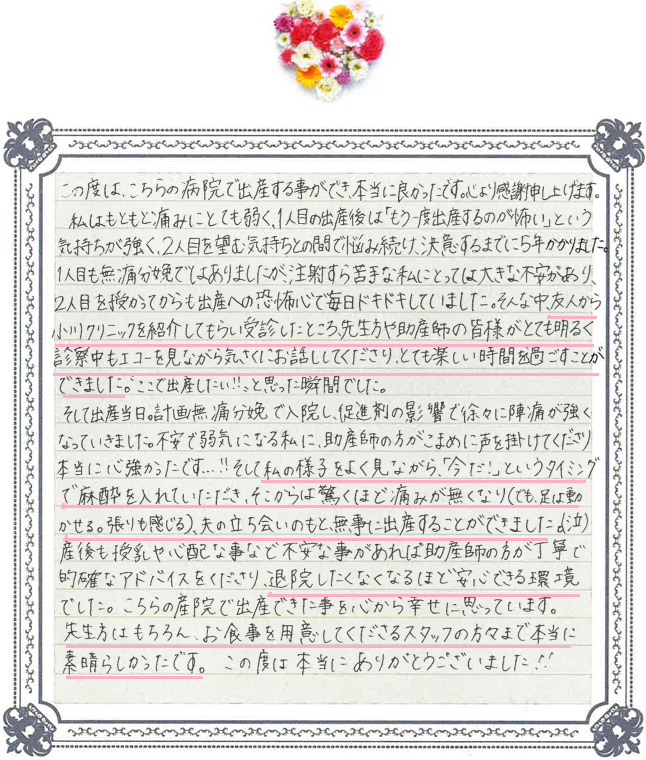 この度は、こちらの病院で出産する事ができ、本当に良かったです。心より感謝申し上げます。
私はもともと痛みにとても弱く、1人目の出産後は「もう一度出産するのが怖い」という
気持ちが強く、2人目を望む気持ちとの間で悩み続け、決意するまでに5年かかりました。
1人目も無痛分娩ではありましたが、注射すら苦手な私にとっては大きな不安があり、
2人目を授かってからも出産への恐怖心で毎日ドキドキしていました。そんな中友人から
小川クリニックを紹介してもらい受診したところ先生方や助産師の皆様がとても明るく
診察中もエコーを見ながら気さくにお話ししてくださり、とても楽しい時間を過ごすことが
できました。ここで出産したい!!、と思った瞬間でした。
そして出産当日。計画無痛分娩で入院し、促進剤の影響で徐々に陣痛が強く
なっていきました。不安で弱気になる私に、助産師の方がこまめに声を掛けてくださり
本当に心強かったです…!! そして私の様子をよく見ながら、「今だ!」というタイミング
で麻酔を入れていただき、そこからは驚くほど痛みが無くなり(でも、足は動
かせる。張りも感じる)、夫の立ち会いのもと、無事に出産することができました(泣)
産後も授乳や心配な事など不安な事があれば助産師の方が丁寧で
的確なアドバイスをくださり、退院したくなくなるほど安心できる環境
でした。こちらの産院で出産できた事を心から幸せに思っています。
先生方はもちろん、お食事を用意してくださるスタッフの方々まで本当に
素晴らしかったです。この度は本当にありがとうございました!!